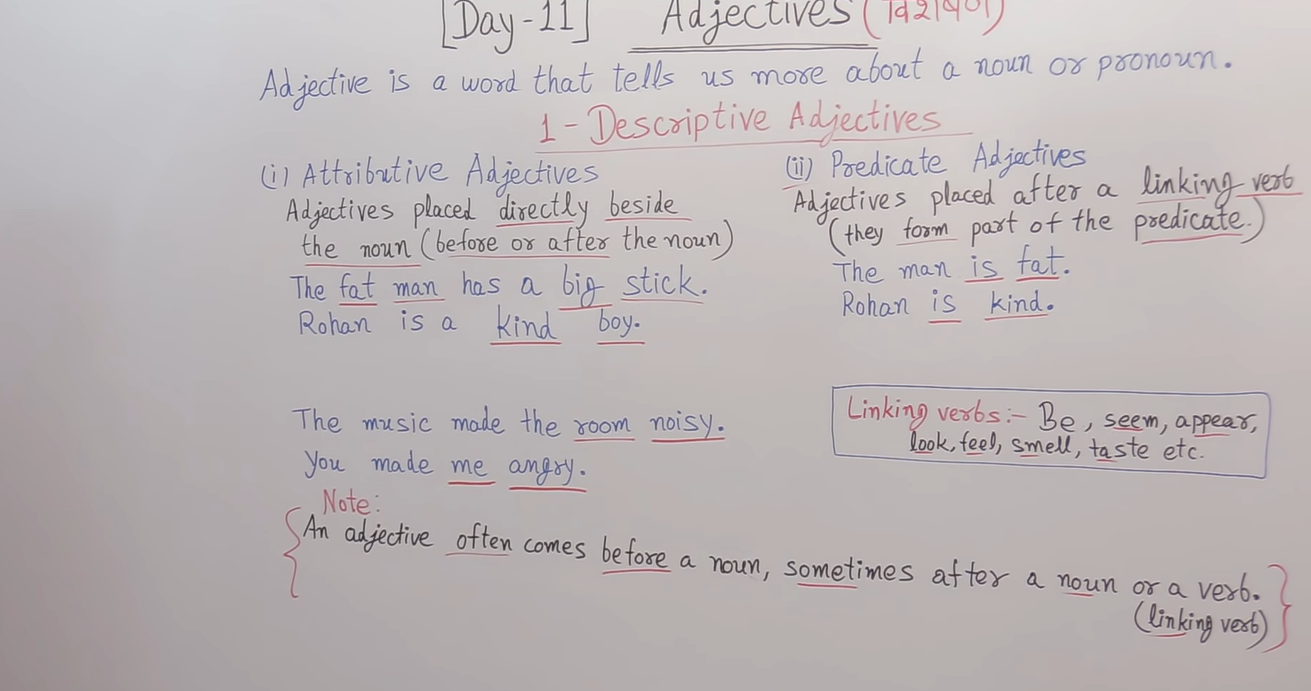 [Day-11] Adjectives (विशेषण)
Adjective is a word that tells us more about a noun or pronoun.
1 - Descriptive Adjectives
(i) Attributive Adjectives
Adjectives placed directly beside
the noun (before or after the noun)
The fat man has a big stick.
Rohan is a kind boy.
The music made the room noisy.
You made me angry.
(ii) Predicate Adjectives
Adjectives placed after a linking verb
(they form part of the predicate.)
The man is fat.
Rohan is kind.
Linking verbs:- Be, seem, appear,
look, feel, smell, taste etc.
Note:
An adjective often comes before a noun, sometimes after a noun or a verb.
(linking verb)